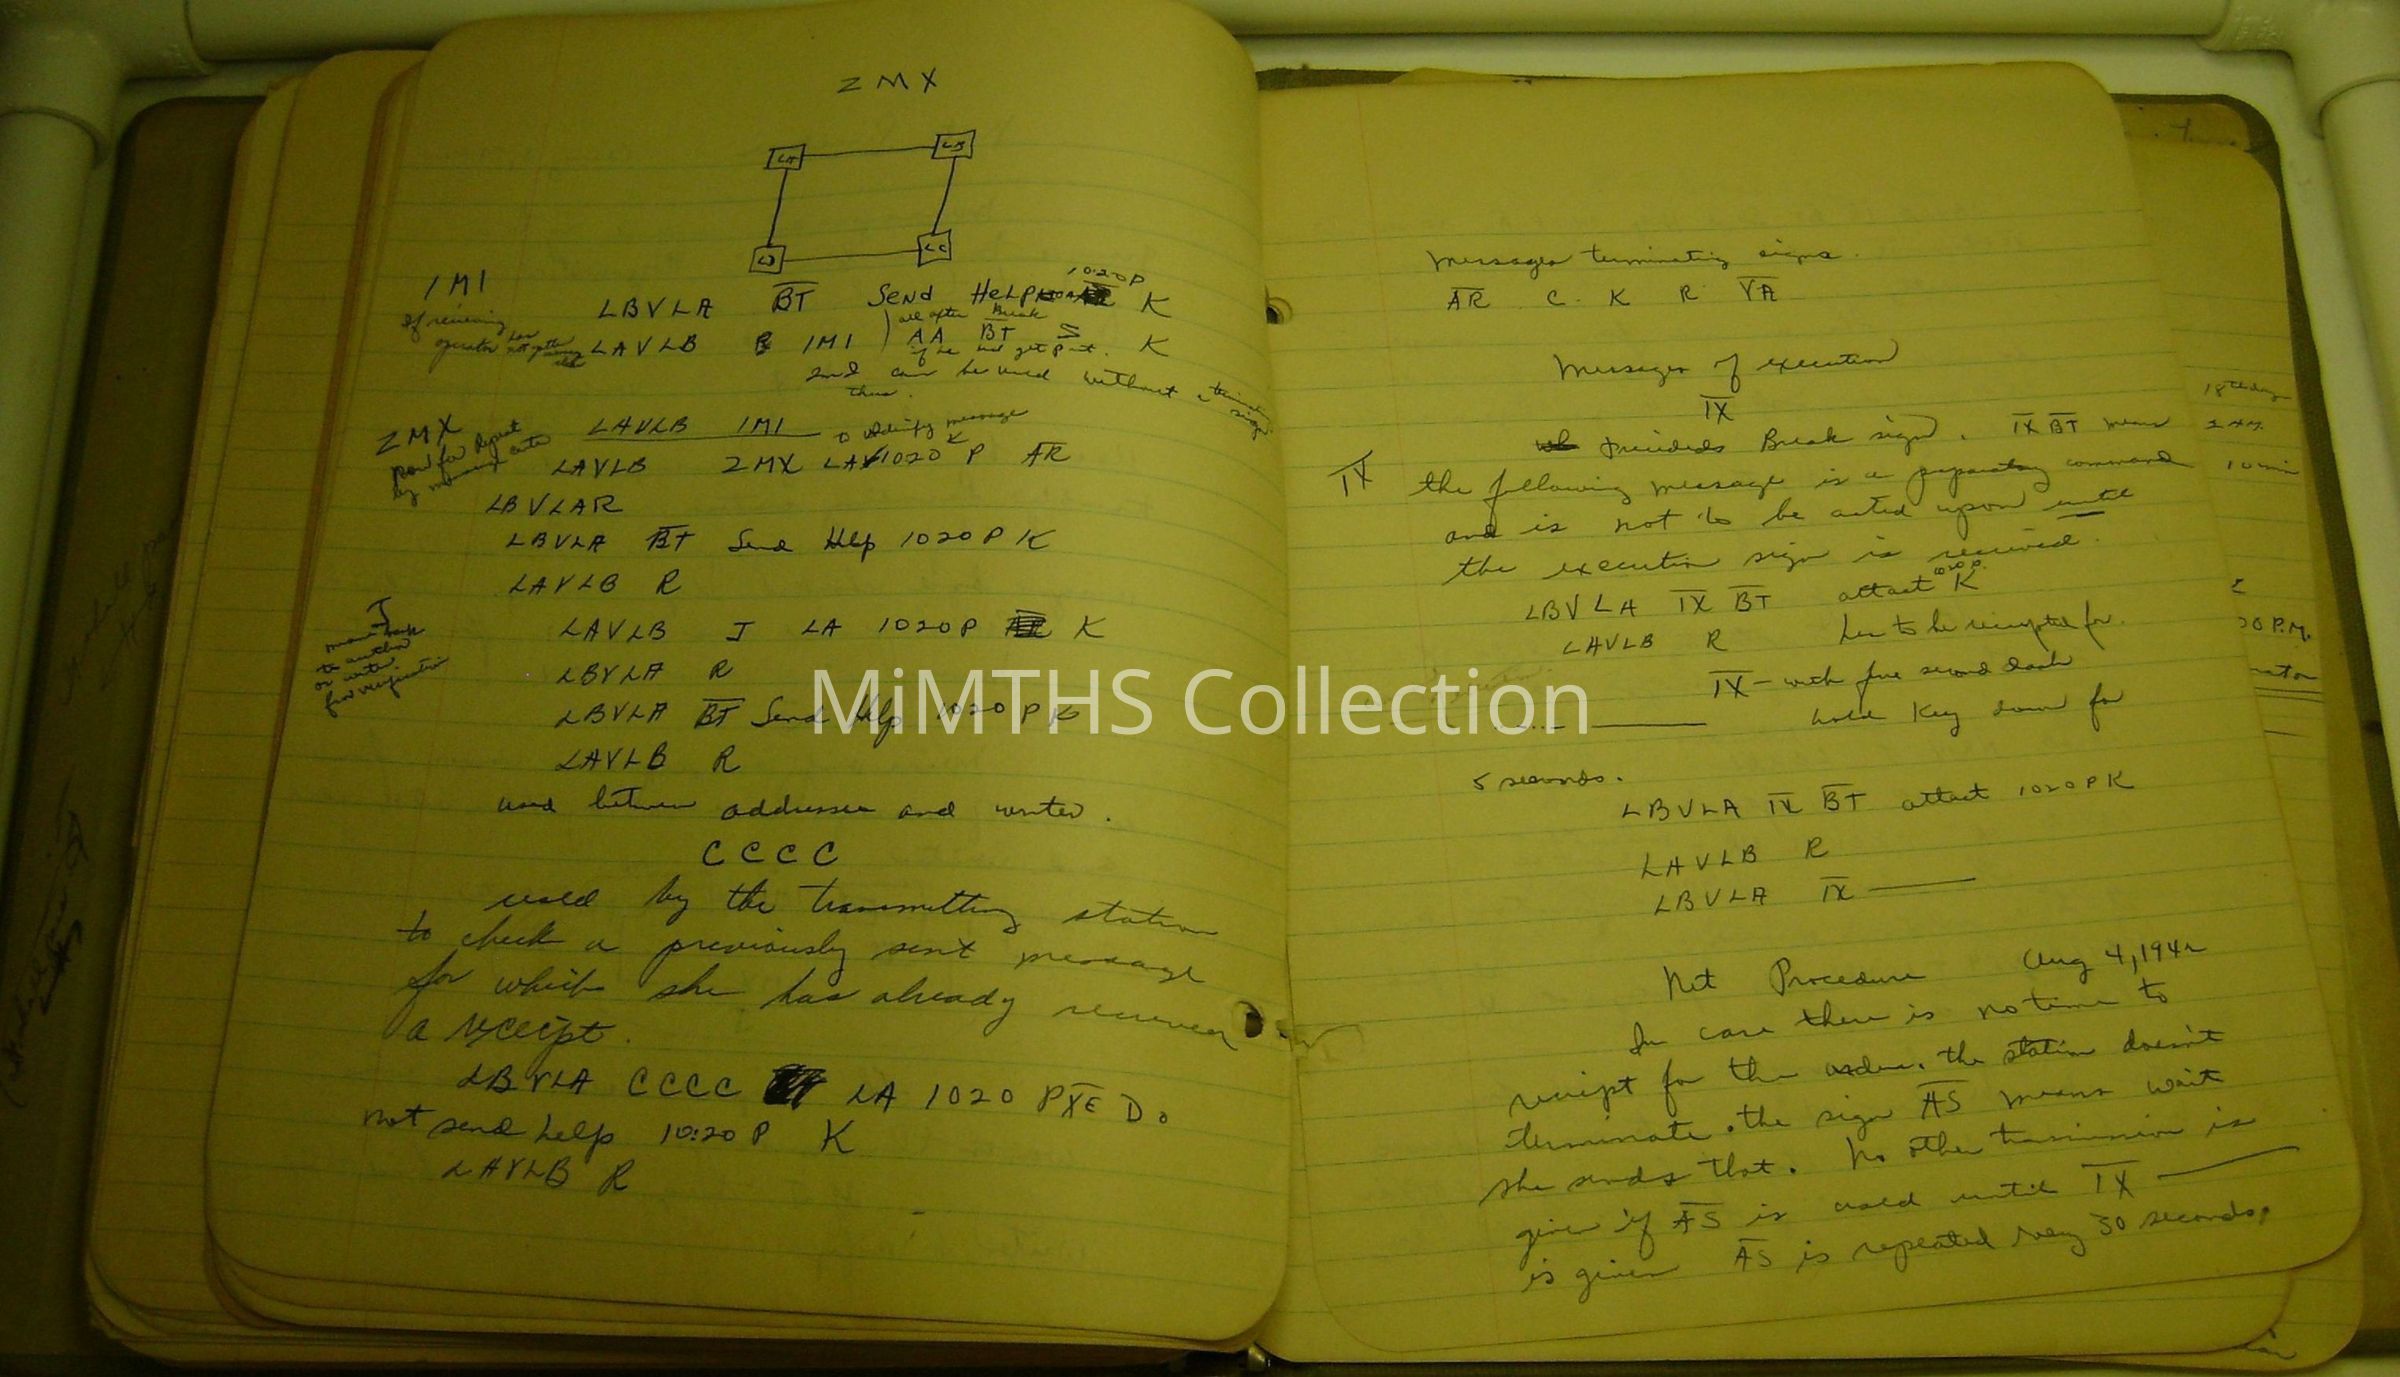 ZMX
LA LB
LD LC
IMI
10:20 P
LBVLA BT Send Help K
If receiving
operator has not gotten
all after Break
LAVLB IMI AA BT S K
and can be used without a terminating sign
thus.
LAVLB IMI
to identify message
ZMX
LAVLB ZMX LA 1020 P K AR
LBVLAR
LBVLA BT Send Help 1020 P K
LAVLB R
J
LAVLB J LA 1020 P K
to author
or writer
for verification
LBVLA R
LBVLA BT Send Help 1020 P K
LAVLB R
used between addressee and writer.
CCCC
used by the transmitting station
to check a previously sent message
for which she has already received
a receipt.
LBVLA CCCC LA 1020 P XE Do
not send help 10:20 P K
LAVLB R
Messages terminating signs.
AR C. K R VA
Messages of execution
IX
precedes Break sign. IX BT means
IX the following message is a preparatory command
and is not to be acted upon until
the execution sign is received.
LBVLA IX BT attact 1020 P. K
LAVLB R has to be receipted for.
IX — with five second dash
hold Key down for
5 seconds.
LBVLA IX BT attact 1020 P K
LAVLB R
LBVLA IX
Net Procedure Aug 4, 1942
In case there is no time to
receipt for the order, the station doesn't
terminate. the sign AS means wait
she sends that. No other transmission is
given if AS is used until IX
is given AS is repeated every 30 seconds.
18th day
2 A.M.
10 min
P.M.
MiMTHS Collection